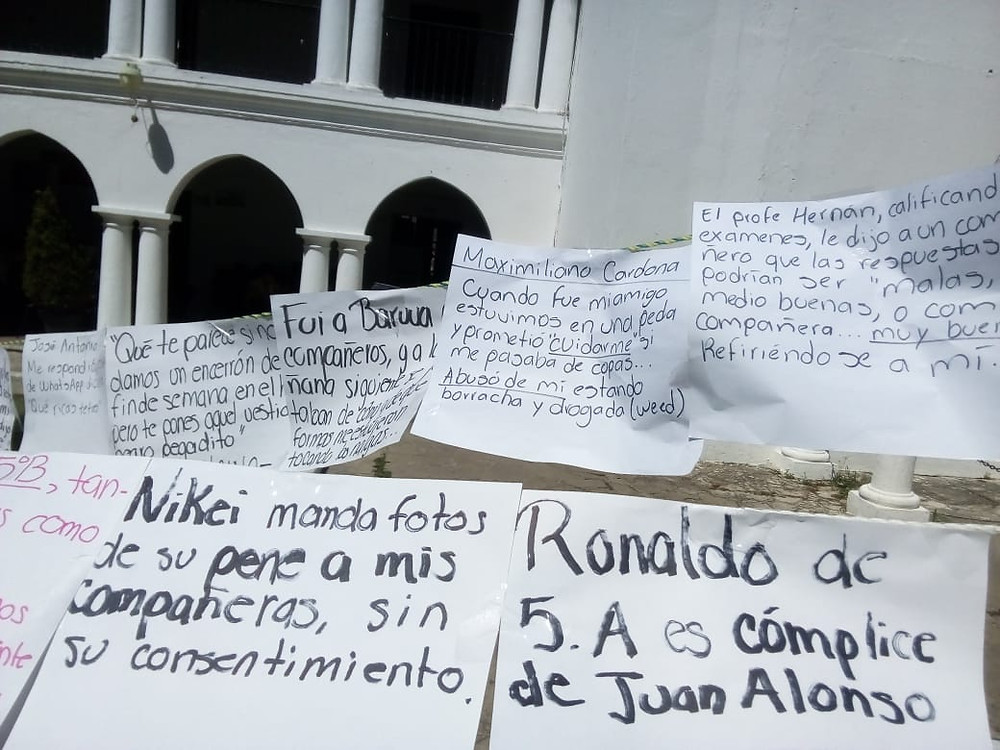 José Antonio
Me respondió
de WhatsApp
"Qué ricas tetas"
"Qué te parece si nos
damos un encerrón de
finde semana en el
pero te pones aquel vestido
negro pegadito"
Fui a
compañeros, y a la
mañana siguiente
formas me estuvieron
tocando las nalgas...
Maximiliano Cardona
Cuando fue mi amigo
estuvimos en una peda
y prometió "cuidarme" si
me pasaba de copas...
Abusó de mi estando
borracha y drogada (weed)
El profe Hernán, calificand
examenes, le dijo a un com
ñero que las respuestas
podrían ser "malas,
medio buenas, o com
compañera... muy buen
Refiriéndose a mí.
5ºB, tan-
s como
os
nte
Nikei manda fotos
de su pene a mis
compañeras, sin
su consentimiento.
Ronaldo de
5.A es cómplice
de Juan Alonso